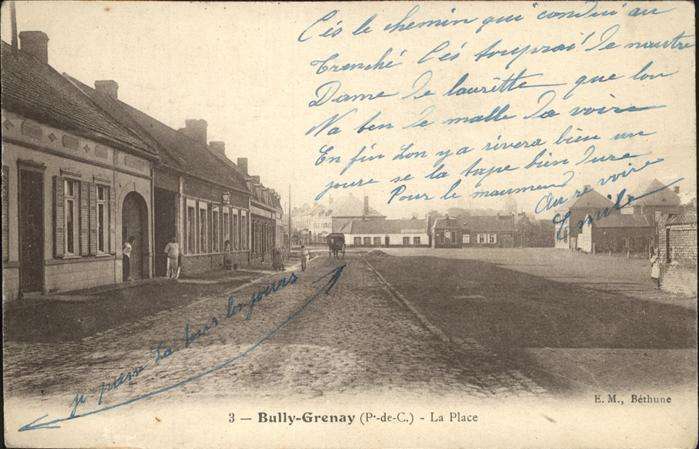 C'és le chemin qui conduí au
tranché C'és toupraí de noutre
Dame de laurette que lon
Va ben de malle da voire
En fin Lon y a rivera bien un
joure se la tape bien dure
Pour le maumend
au re voire
Emile
je passe la tous les jours
3 — Bully-Grenay (P^s-de-C.) - La Place
E. M., Béthune